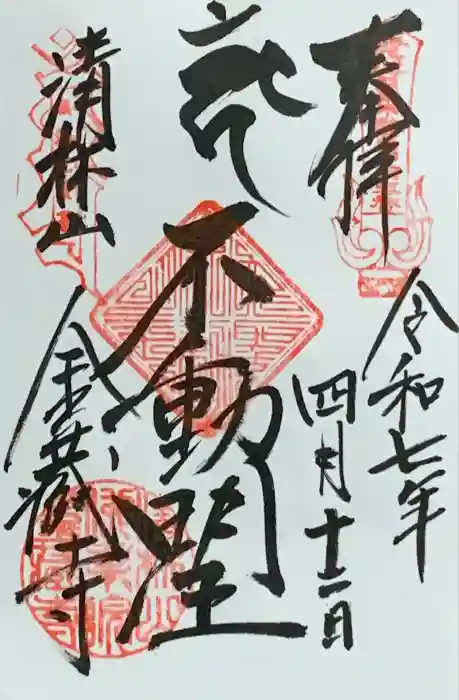 奉拝
令和七年
四月十二日
不動閣
清林山
金蔵寺